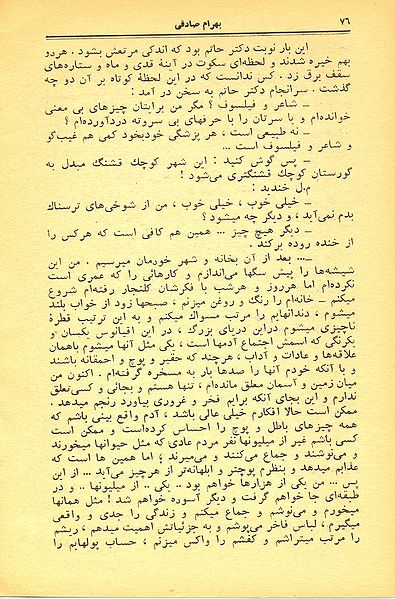 ۷۶
بهرام صادقی
این بار نوبت دکتر حاتم بود که اندکی مرتعش بشود . هردو
بهم خیره شدند و لحظه‌ای سکوت در آینهٔ قدی و ماه و ستاره‌های
سقف برق زد . کس ندانست که در این لحظهٔ کوتاه بر آن دو چه
گذشت . سرانجام دکتر حاتم به سخن در آمد :
ــ شاعر و فیلسوف ؟ مگر من برایتان چیزهای بی معنی
خوانده‌ام و یا سرتان را با حرفهای بی سروته دردآورده‌ام ؟
ــ نه طبیعی است ، هر پزشکی خودبخود کمی هم غیب‌گو
و شاعر و فیلسوف است ...
ــ پس گوش کنید : این شهر کوچك قشنگ مبدل به
گورستان کوچك قشنگتری می‌شود !
م.ل خندید :
ــ خیلی خوب ، خیلی خوب ، من از شوخی‌های ترسناك
بدم نمی‌آید ، و دیگر چه میشود ؟
ــ دیگر هیچ چیز ... همین هم کافی است که هرکس را
از خنده روده برکند .
ــ... بعد از آن بخانه و شهر خودمان میرسیم . من این
شیشه‌ها را پیش سگها می‌اندازم و کارهائی را که عمری است
نکرده‌ام اما هرروز و هرشب با فکرشان کلنجار رفته‌ام شروع
میکنم ــ خانه‌ام را رنگ و روغن میزنم ، صبحها زود از خواب بلند
میشوم ، دندانهایم را مرتب مسواك میکنم و به این ترتیب قطرهٔ
ناچیزی میشوم دراین دریای بزرگ ، در این اقیانوس یکسان و
یکرنگی که اسمش اجتماع آدمها است ، یکی مثل آنها میشوم باهمان
علاقه‌ها و عادات و آداب ، هرچند که حقیر و پوچ و احمقانه باشند
و با آنکه خودم آنها را صدها بار به مسخره گرفته‌ام . اکنون من
میان زمین و آسمان معلق مانده‌ام ، تنها هستم و بجائی و کسی‌تعلق
ندارم و این بجای آنکه برایم فخر و غروری بیاورد رنجم میدهد .
ممکن است حالا افکارم خیلی عالی باشد ، آدم واقع بینی باشم که
همه چیزهای باطل و پوچ را احساس کرده‌است و ممکن است
کسی باشم غیر از میلیونها نفر مردم عادی که مثل حیوانها میخورند
و می‌نوشند و جماع می‌کنند و می‌میرند ؛ اما همین ها است که
عذابم میدهد و بنظرم پوچتر و ابلهانه‌تر از هرچیز می‌آید ... از این
پس ... من یکی از هزارها خواهم بود .. یکی . از میلیونها .. و در
طبقه‌ای جا خواهم گرفت و دیگر آسوده خواهم شد ! مثل همانها
میخورم و می‌نوشم و جماع میکنم و زندگی را جدی و واقعی
میگیرم ، لباس فاخر می‌پوشم و به جزئیاتش اهمیت میدهم ، ریشم
را مرتب میتراشم و کفشم را واکس میزنم ، حساب پولهایم را